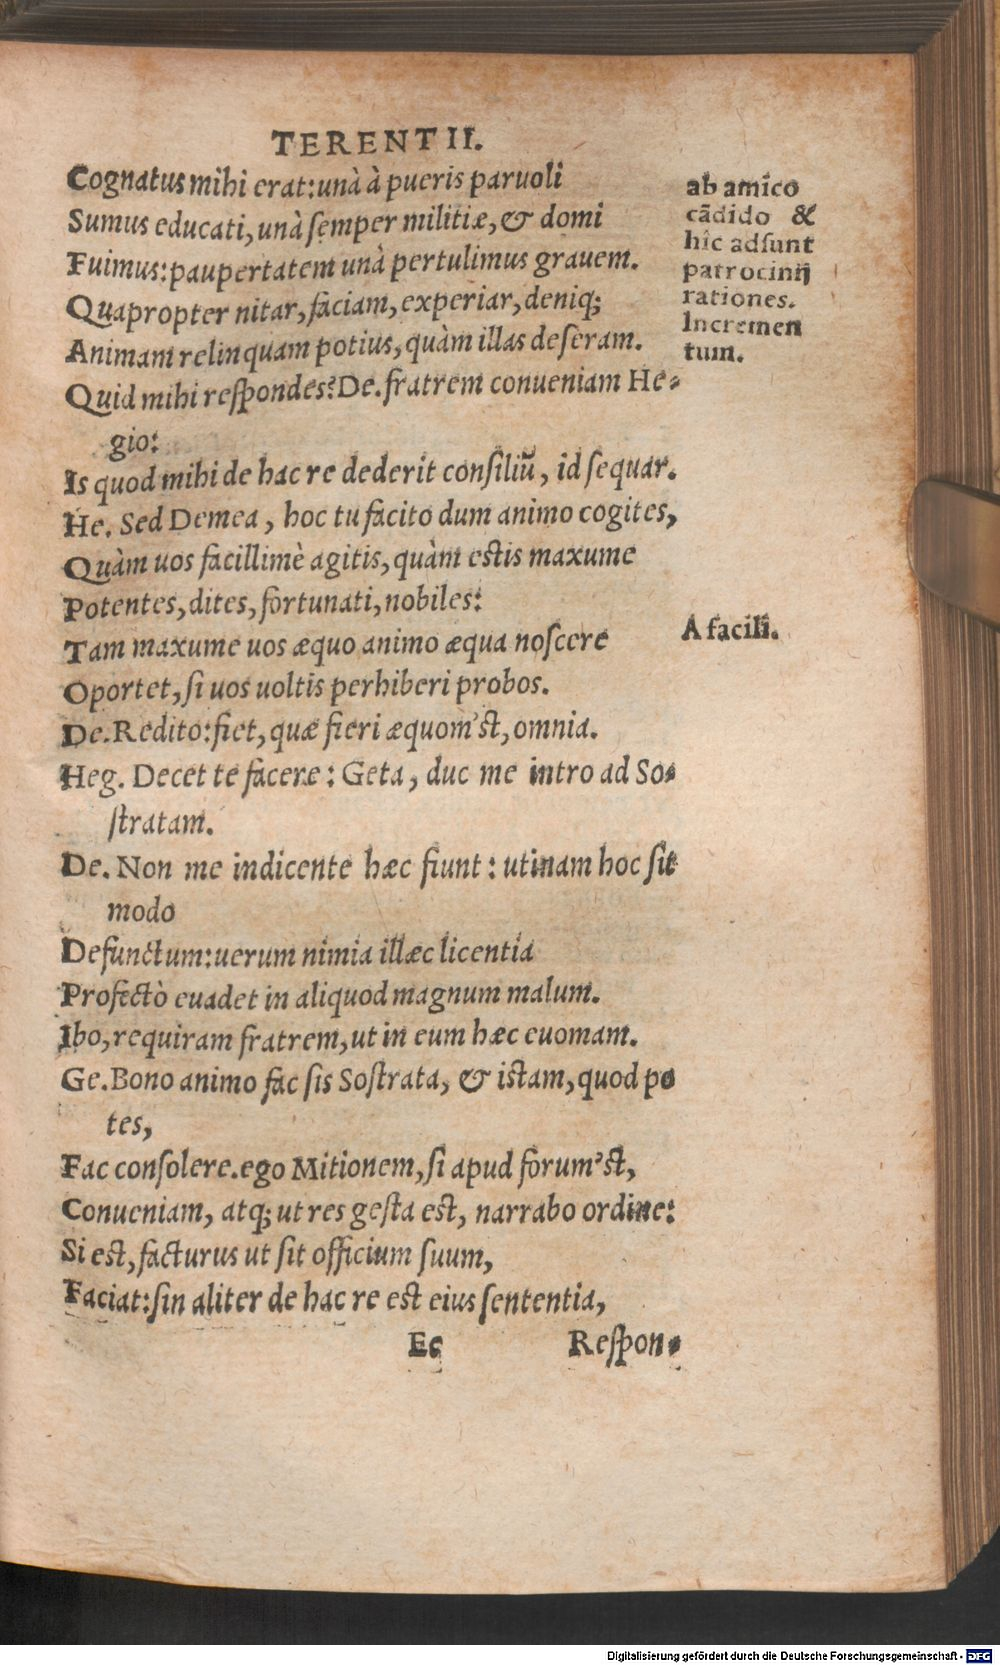 TERENTII.
Cognatus mihi erat: unà à pueris paruoli
Sumus educati, unà semper militiæ, & domi
Fuimus: paupertatem unà pertulimus grauem.
Quapropter nitar, faciam, experiar, deniq;
Animam relinquam potius, quàm illas deseram.
Quid mihi respondes? De. fratrem conueniam He-
gio:
Is quod mihi de hac re dederit consiliū, id sequar.
He. Sed Demea, hoc tu facito dum animo cogites,
Quàm uos facillimè agitis, quàm estis maxume
Potentes, dites, fortunati, nobiles:
Tam maxume uos æquo animo æqua noscere
Oportet, si uos uoltis perhiberi probos.
De. Redito: fiet, quæ fieri æquom'st, omnia.
Heg. Decet te facere: Geta, duc me intro ad So-
stratam.
De. Non me indicente hæc fiunt: utinam hoc sit
modo
Defunctum: uerum nimia illæc licentia
Profectò euadet in aliquod magnum malum.
Ibo, requiram fratrem, ut in eum hæc euomam.
Ge. Bono animo fac sis Sostrata, & istam, quod po
tes,
Fac consolere. ego Mitionem, si apud forum'st,
Conueniam, atq; ut res gesta est, narrabo ordine:
Si est, facturus ut sit officium suum,
Faciat: sin aliter de hac re est eius sententia,
Ee Respon-
ab amico
cādido &
hîc adsunt
patrocinij
rationes.
Incremen
tum.
A facili.
Digitalisierung gefördert durch die Deutsche Forschungsgemeinschaft - DFG